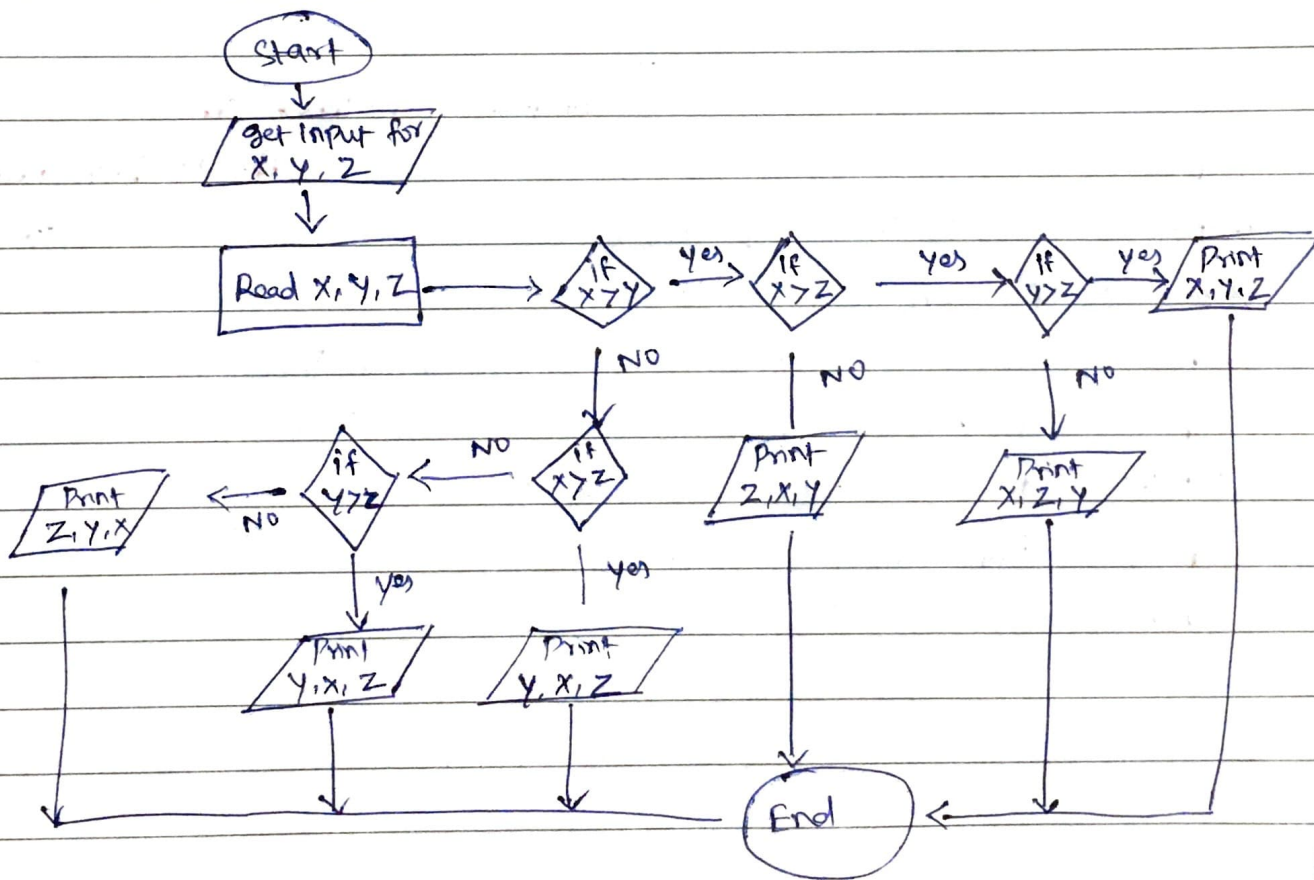 Start
get Input for
X, Y, Z
Read X, Y, Z
if
X>Y
yes
if
X>Z
yes
if
Y>Z
yes
Print
X, Y, Z
NO
NO
NO
Print
Z, Y, X
NO
if
Y>Z
NO
if
X>Z
Print
Z, X, Y
Print
X, Z, Y
yes
yes
Print
Y, X, Z
Print
Y, X, Z
End